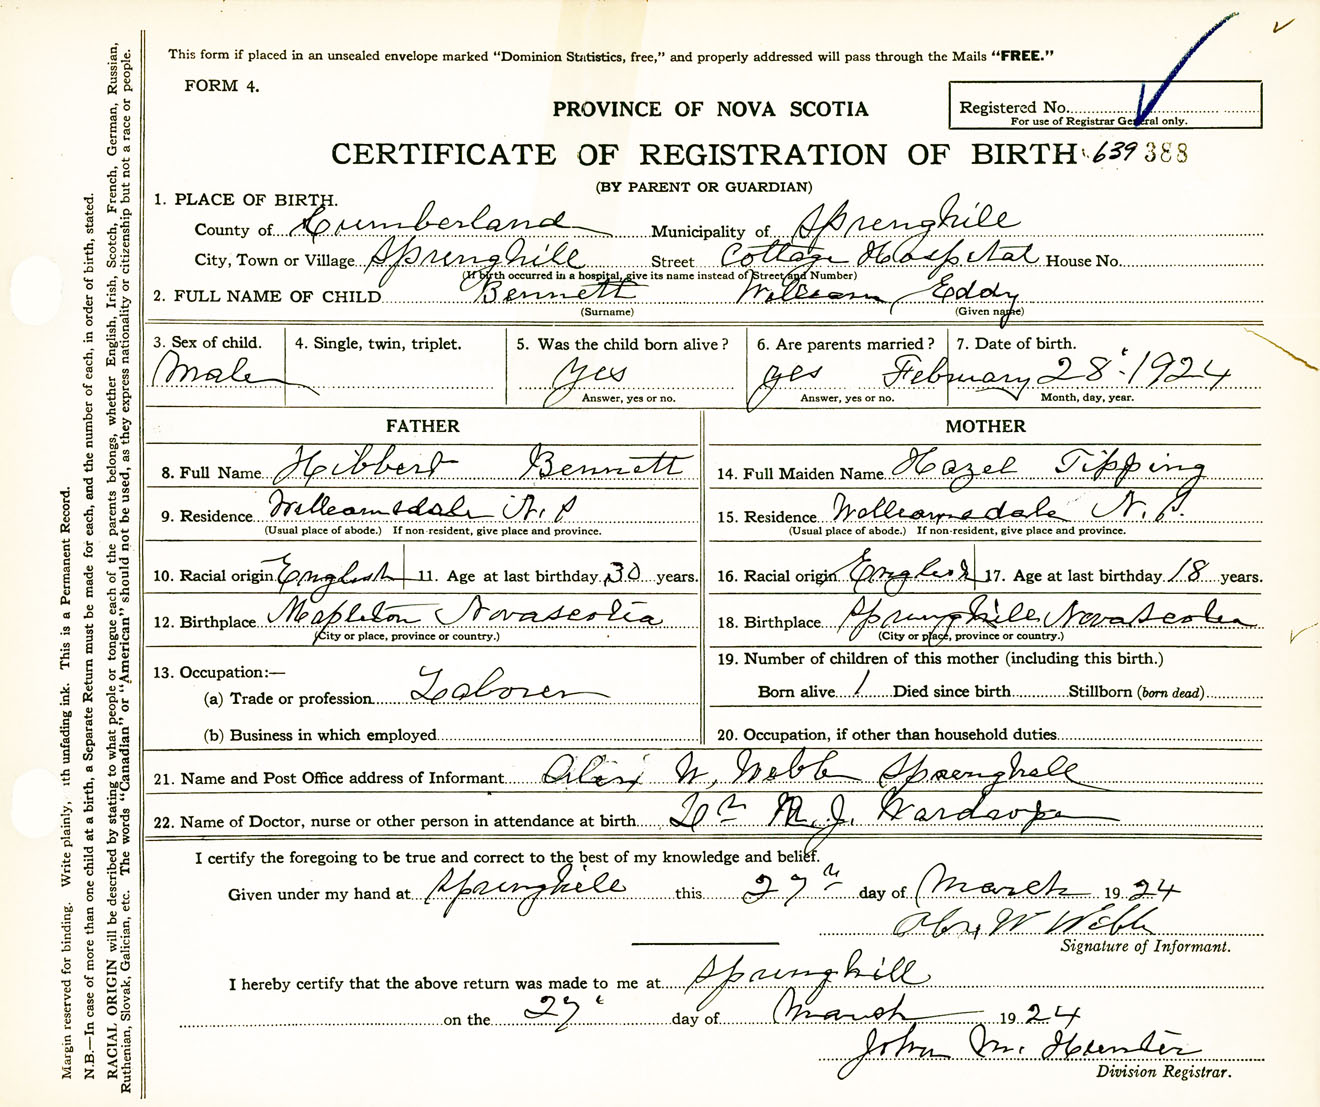 This form if placed in an unsealed envelope marked "Dominion Statistics, free," and properly addressed will pass through the Mails "FREE."
FORM 4.
PROVINCE OF NOVA SCOTIA
Registered No.
For use of Registrar General only.
CERTIFICATE OF REGISTRATION OF BIRTH 639 388
(BY PARENT OR GUARDIAN)
1. PLACE OF BIRTH.
County of Cumberland Municipality of Springhill
City, Town or Village Springhill Street Cottage Hospital House No.
(If birth occurred in a hospital, give its name instead of Street and Number)
2. FULL NAME OF CHILD Bennett William Eddy
(Surname) (Given name)
3. Sex of child. 4. Single, twin, triplet. 5. Was the child born alive? 6. Are parents married? 7. Date of birth.
Male yes yes February 28 1924
Answer, yes or no. Answer, yes or no. Month, day, year.
FATHER MOTHER
8. Full Name Hibbert Bennett 14. Full Maiden Name Hazel Tipping
9. Residence Williamsdale N.S 15. Residence Williamsdale N.S.
(Usual place of abode.) If non-resident, give place and province. (Usual place of abode.) If non-resident, give place and province.
10. Racial origin English 11. Age at last birthday 30 years. 16. Racial origin English 17. Age at last birthday 18 years.
12. Birthplace Mapleton Novascotia 18. Birthplace Springhill Nova Scotia
(City or place, province or country.) (City or place, province or country.)
13. Occupation:— 19. Number of children of this mother (including this birth.)
(a) Trade or profession Laborer Born alive 1 Died since birth Stillborn (born dead)
(b) Business in which employed 20. Occupation, if other than household duties
21. Name and Post Office address of Informant Alex W. Webb Springhill
22. Name of Doctor, nurse or other person in attendance at birth Dr M. J. Wardrope
I certify the foregoing to be true and correct to the best of my knowledge and belief.
Given under my hand at Springhill this 27 day of March 1924
Alex W Webb
Signature of Informant.
I hereby certify that the above return was made to me at Springhill
on the 27 day of March 1924
John M. Hunter
Division Registrar.
Margin reserved for binding. Write plainly, ith unfading ink. This is a Permanent Record.
N.B.—In case of more than one child at a birth, a Separate Return must be made for each, and the number of each, in order of birth, stated.
RACIAL ORIGIN will be described by stating to what people or tongue each of the parents belongs, whether English, Irish, Scotch, French, German, Russian,
Ruthenian, Slovak, Galician, etc. The words "Canadian" or "American" should not be used, as they express nationality or citizenship but not a race or people.